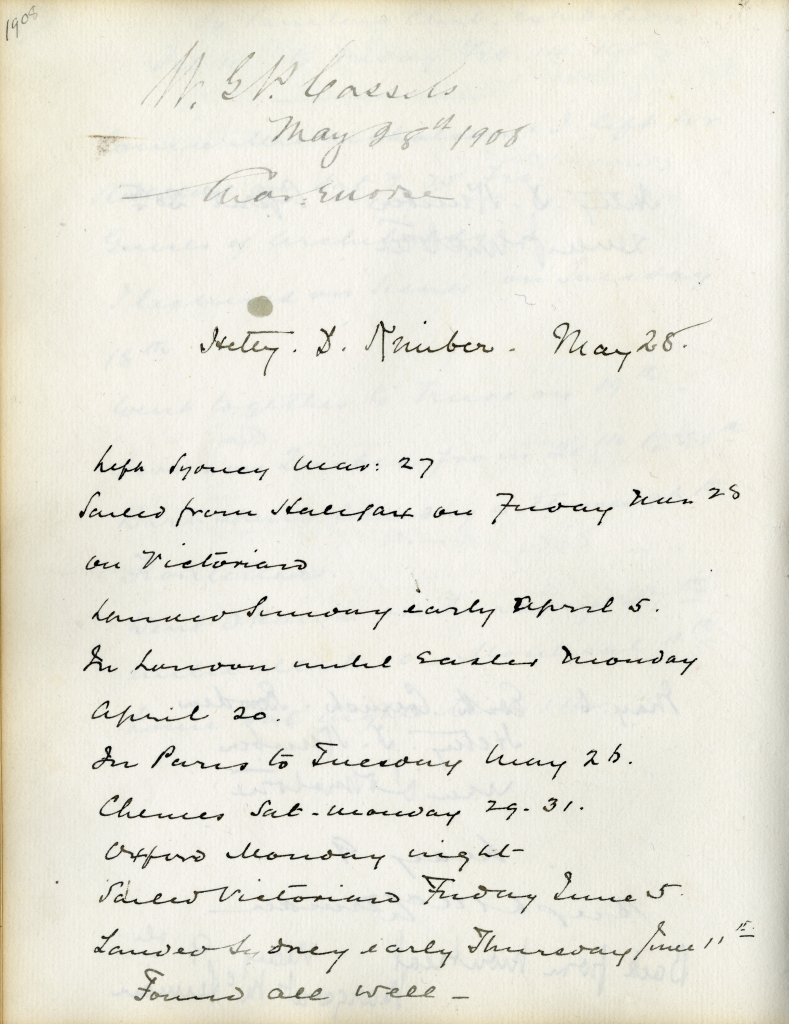 1908
W. G. P. Cassels
May 28th 1908
Hetty. D. Kimber. May 28.
Left Sydney Mar: 27
Sailed from Halifax on Friday Mar 28
on Victorian
Landed Sunday early April 5.
In London until Easter Monday
April 20.
In Paris to Tuesday May 26.
Sat-Monday 29-31.
Oxford Monday night
Sailed Victorian Friday June 5
Landed Sydney early Thursday June 11th
Found all well —